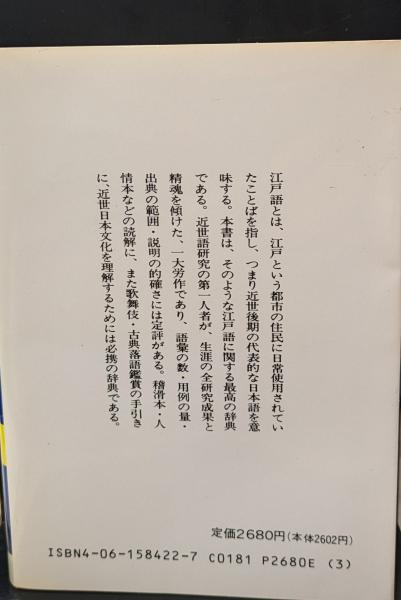 江戸語とは、江戸という都市の住民に日常使用されてい
たことばを指し、つまり近世後期の代表的な日本語を意
味する。本書は、そのような江戸語に関する最高の辞典
である。近世語研究の第一人者が、生涯の全研究成果と
精魂を傾けた、一大労作であり、語彙の数・用例の量・
出典の範囲・説明の的確さには定評がある。稽滑本・人
情本などの読解に、また歌舞伎・古典落語鑑賞の手引き
に、近世日本文化を理解するためには必携の辞典である。
定価2680円(本体2602円)
ISBN4-06-158422-7 C0181 P2680E (3)